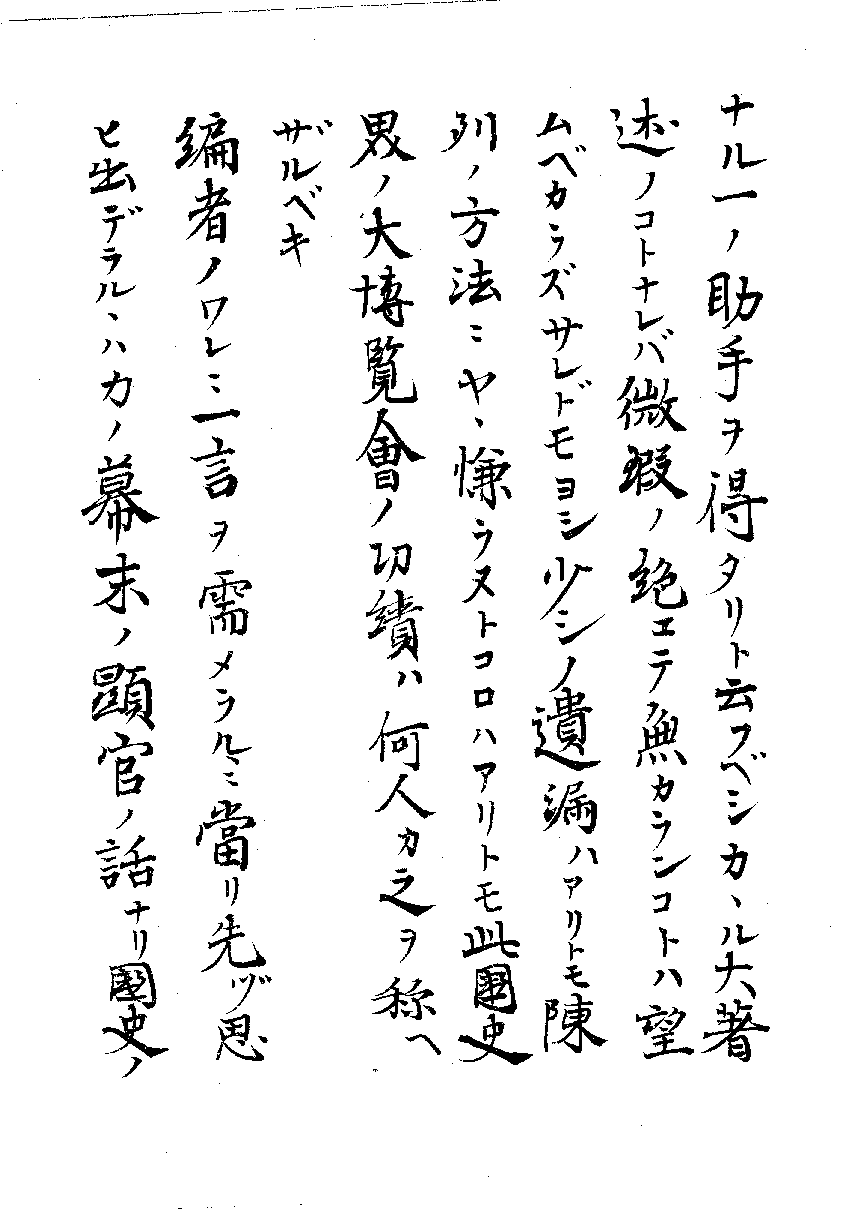 ナル一ノ助手ヲ得タリト云フベシカヽル大著
述ノコトナレバ微瑕ノ絶エテ無カランコトハ望
ムベカラズサレドモヨシ少シノ遺漏ハアリトモ陳
列ノ方法ニヤヽ慊ラヌトコロハアリトモ此國史
界ノ大博覧會ノ功績ハ何人カ之ヲ称ヘ
ザルベキ
編者ノワレニ一言ヲ需メラルヽニ當リ先ヅ思
ヒ出デラルヽハカノ幕末ノ顕官ノ話ナリ國史ノ